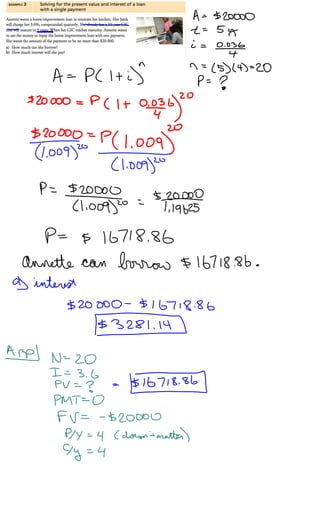 EXAMPLE 3 Solving for the present value and interest of a loan
with a single payment
Annette wants a home improvement loan to renovate her kitchen. Her bank
will charge her 3.6%, compounded quarterly. She already has a 10-year GIC
that will mature in 5 years. When her GIC reaches maturity, Annette wants
to use the money to repay the home improvement loan with one payment.
She wants the amount of the payment to be no more than $20 000.
a) How much can she borrow?
b) How much interest will she pay?
A = $20000
t = 5
i = 0.036/4
n = (5)(4) = 20
P = ?
A = P(1+i)^n
$20 000 = P(1 + 0.036/4)^20
$20 000 = P(1.009)^20
(1.009)^20 (1.009)^20
P = $20000/(1.009)^20 = $20000/1.19625
P = $ 16718.86
Annette can borrow $16718.86.
interest
$20 000 - $16718.86
$3281.14
App
N = 20
I = 3.6
PV = ? = $16718.86
PMT = 0
FV = -$20000
P/Y = 4 (doesn't matter)
C/y = 4